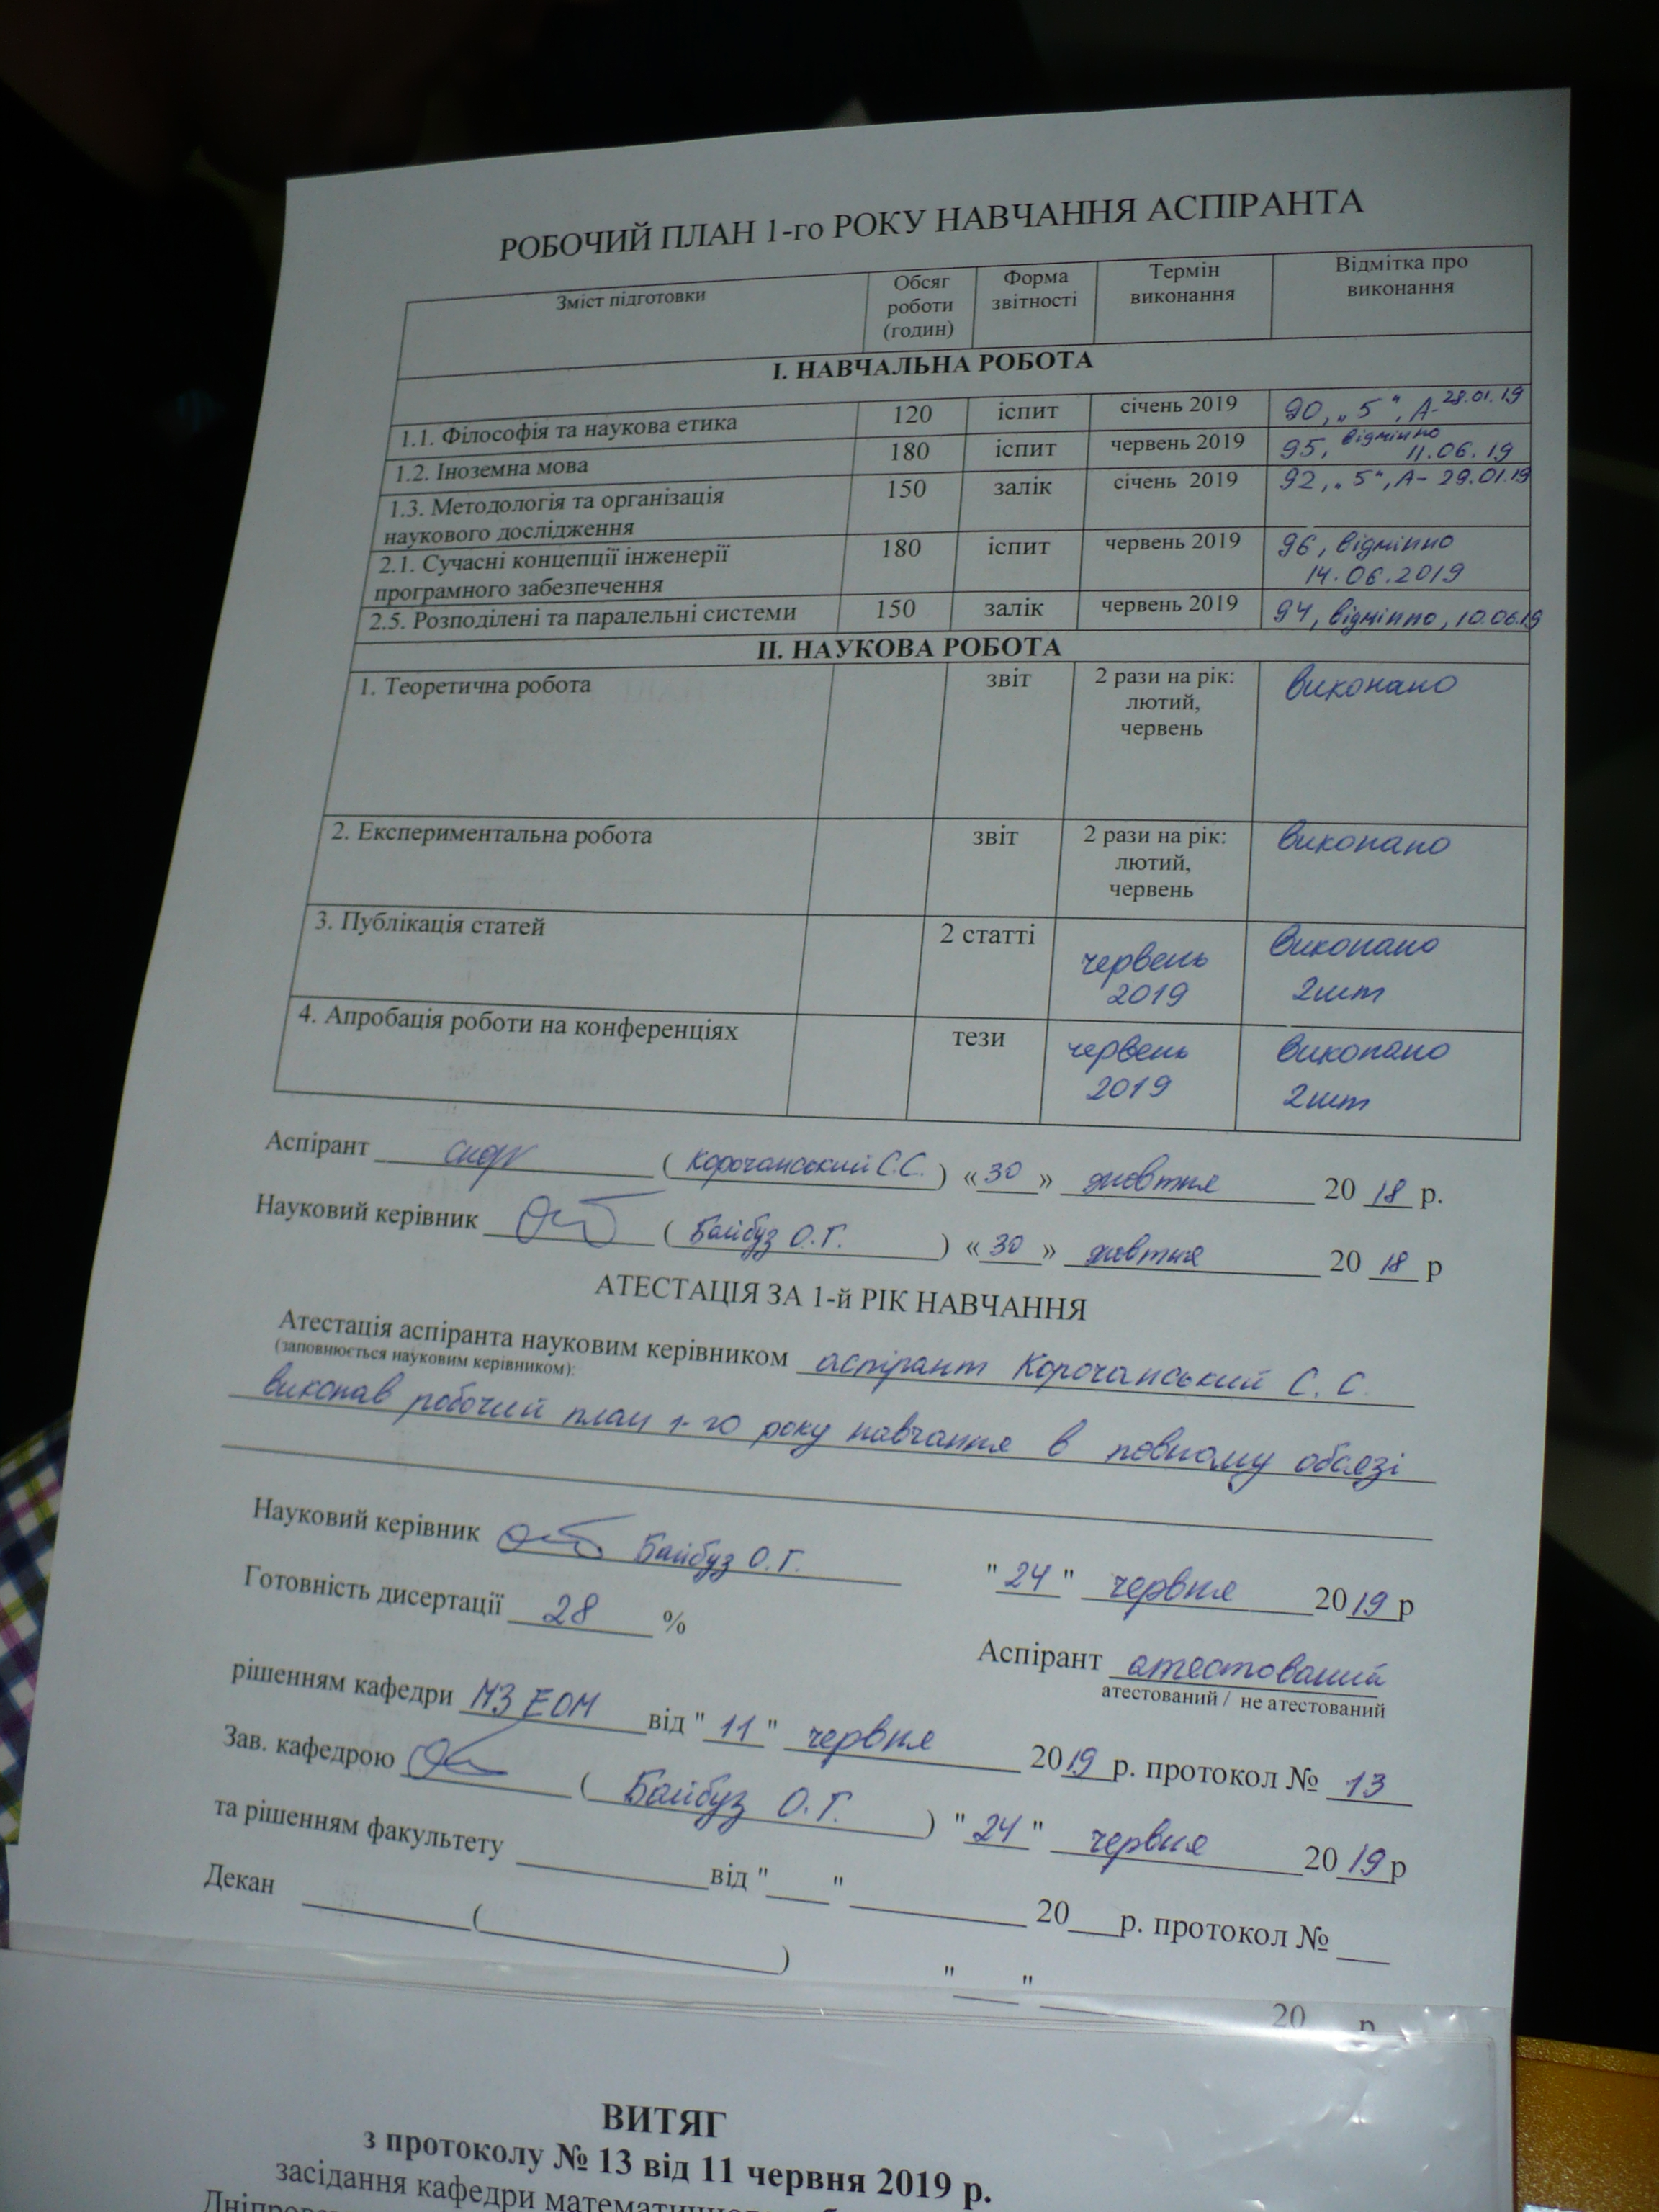 РОБОЧИЙ ПЛАН 1-го РОКУ НАВЧАННЯ АСПІРАНТА
Зміст підготовки
Обсяг роботи (годин)
Форма звітності
Термін виконання
Відмітка про виконання
І. НАВЧАЛЬНА РОБОТА
1.1. Філософія та наукова етика 120 іспит січень 2019 90, „5“, А- 28.01.19
1.2. Іноземна мова 180 іспит червень 2019 95, відмінно 11.06.19
1.3. Методологія та організація 150 залік січень 2019 92, „5“, А- 29.01.19
наукового дослідження
2.1. Сучасні концепції інженерії 180 іспит червень 2019 96, відмінно
програмного забезпечення 14.06.2019
2.5. Розподілені та паралельні системи 150 залік червень 2019 94, відмінно, 10.06.19
ІІ. НАУКОВА РОБОТА
1. Теоретична робота звіт 2 рази на рік: виконано
лютий,
червень
2. Експериментальна робота звіт 2 рази на рік: виконано
лютий,
червень
3. Публікація статей 2 статті червень виконано
2019 2шт
4. Апробація роботи на конференціях тези червень виконано
2019 2шт
Аспірант (Корочанський С.С.) «30» жовтня 2018 р.
Науковий керівник (Байбуз О.Г.) «30» жовтня 2018 р
АТЕСТАЦІЯ ЗА 1-й РІК НАВЧАННЯ
Атестація аспіранта науковим керівником аспірант Корочанський С. С.
(заповнюється науковим керівником):
виконав робочий план 1-го року навчання в повному обсязі
Науковий керівник Байбуз О.Г. "24" червня 2019 р
Готовність дисертації 28 %
Аспірант атестований
атестований / не атестований
рішенням кафедри МЗ ЕОМ від "11" червня 2019 р. протокол № 13
Зав. кафедрою (Байбуз О.Г.) "24" червня 2019 р
та рішенням факультету від " " 20 р. протокол №
Декан ( ) " " 20 р
ВИТЯГ
з протоколу № 13 від 11 червня 2019 р.
засідання кафедри